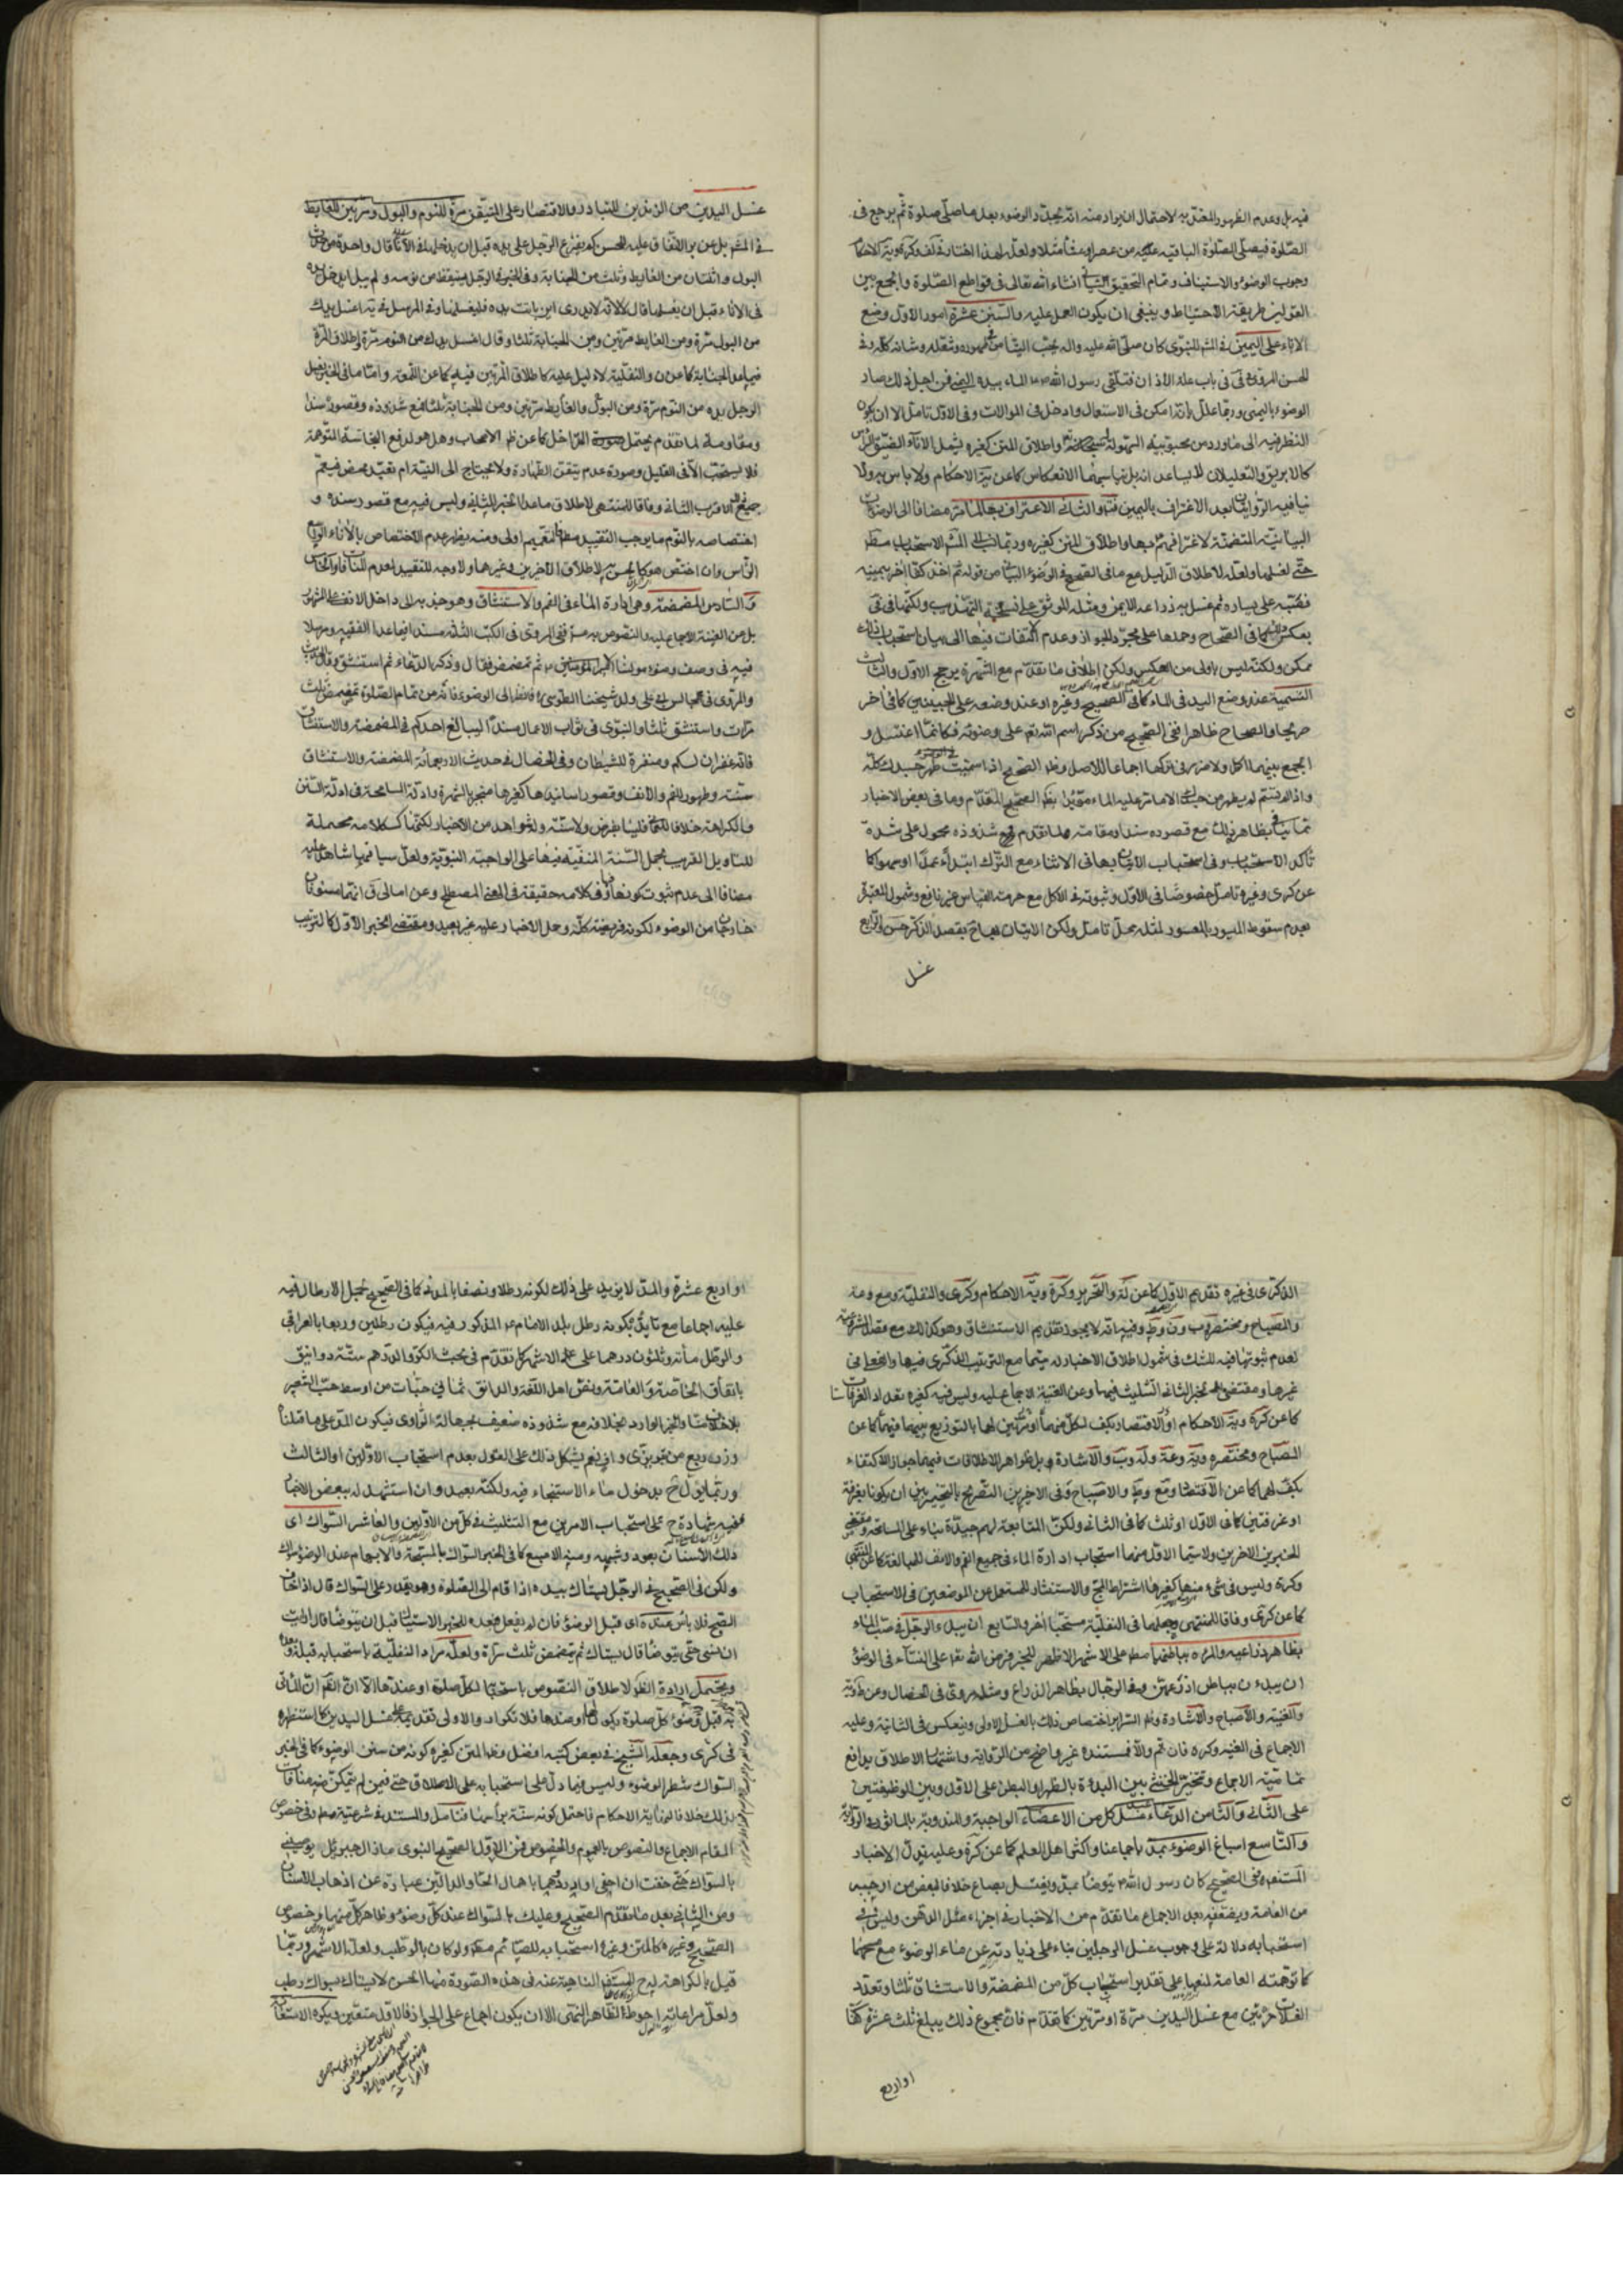 فيه بل وعدم الظهور المعتد به لاحتمال ان يراد منه انه يجدد الوضوء بعد ما صلى صلوة ثم يرجع في
الصلوة فيصلى الصلوة الباقيه عليه من عصر او عشا مثلا ولعل لهذا اختار في لف وكره ويه الاحكام
وجوب الوضوء والاستيناف وتمام التحقيق انشاء الله تعالى في قواطع الصلوة والجمع بين
القولين طريقة الاحتياط وينبغى ان يكون العمل عليه والسنن عشرة امور الاول وضع
الاناء على اليمين في المشهور للنبوى كان صلى الله عليه واله يحب التيامن في طهوره وتنعله وشانه كله وفى
الحسن المروى في في باب علة الاذان فتلقى رسول الله الماء بيده اليمنى فمن اجل ذلك صار
الوضوء باليمنى وربما علل بانه امكن في الاستعمال وادخل في الموالات وفى الاول تامل الا ان يكون
النظر فيه الى ما ورد من محبوبيته السهولة واطلاق المتن كغيره يشمل الاناء الضيق الراس
كالابريق والتعليلان لا يساعدانه بل قياسهما الانعكاس كما عن ية الاحكام ولا باس به ولا
ينافيه الروايتان بعد الاغتراف باليمين منه والثانى الاغتراف بها لما مر مضافا الى الوضوءات
البيانية المتضمنة لاغترافهم بها واطلاق المتن كغيره وربما نسب الى المشهور الاستحباب مطلقا
حتى لغسلها ولعله لاطلاق الدليل مع ما فى الصحيح في الوضوء البياني من قوله ثم اخذ كفا اخر بيمينه
فصبه على يساره ثم غسل به ذراعه الايمن ومثله الموثق على نسخة التهذيب ولكنها في في
بعكس ذلك كما في الصحاح وحملها على مجرد الجواز وعدم التفات فيها الى بيان استحباب ذلك
ممكن ولكنه ليس باولى من العكس ولكن اطلاق ما تقدم مع الشهرة يرجح الاول والثالث
التسمية عند وضع اليد في الماء كما في الصحيح وغيره او عند وضعه على الجبين كما في اخر
صريحا والصحاح ظاهرا ففى الصحيح من ذكر اسم الله تعالى على وضوئه فكانما اغتسل و
الجمع بينهما اكمل ولا ضرر في تركها اجماعا للاصل وظاهر الصحيح اذا سميت في الوضوء طهر جسدك كله
واذا لم تسم لم يطهر من جسدك الا ما مر عليه الماء مؤيدا بظاهر الصحيح المتقدم وما في بعض الاخبار
مما ينافى بظاهره ذلك مع قصوره سندا ومقاومته لما تقدم مع شذوذه محمول على شدة
تاكد الاستحباب وفى استحباب الاتيان بها في الاثناء مع الترك ابتداء عمدا او سهوا كما
عن كرى وغيره تامل خصوصا في الاول وثبوته في الاكل مع حرمة القياس غير نافع وشمول المعتبرة
بعدم سقوط الميسور بالمعسور لمثله محل تامل ولكن الاتيان بها بقصد الذكر حسن والرابع
غسل
غسل اليدين من الزندين للتبادر والاقتصار على المتيقن مرة للنوم والبول ومرتين للغايط
في المشهور بل عن بر الاتفاق عليه للحسن كم يفرغ الرجل على يده قبل ان يدخلها في الاناء قال واحدة من حدث
البول واثنتان من الغايط وثلث من الجنابة وفى الخبر في الرجل يستيقظ من نومه ولم يبل ايدخل يده
في الاناء قبل ان يغسلها قال لا لانه لا يدرى اين باتت يده فليغسلها وفى المرسل في يه اغسل يدك
من البول مرة ومن الغايط مرتين ومن الجنابة ثلثا وقال اغسل يدك من النوم مرة واطلاق المرة
فيما عدا الجنابة كما عن ن والنفلية لا دليل عليه كاطلاق المرتين فيه كما عن اللمعة واما ما في الخبر يغسل
الرجل يده من النوم مرة ومن البول والغايط مرتين ومن الجنابة ثلثا فمع شذوذه وقصوره سندا
ومقاومة لما تقدم يحتمل صورة التداخل كما عن ظاهر الاصحاب وهل هو لدفع النجاسة المتوهمة
فلا يستحب الا في القليل وصورة عدم تيقن الطهارة ولا يحتاج الى النية ام تعبد محض فيعم
جميع ذلك اقرب الثانى وفاقا للمنتهى لاطلاق ما عدا الخبر الثانى وليس فيه مع قصور سنده و
اختصاصه بالنوم ما يوجب التقييد مطلقا فالتعميم اولى ومنه يظهر عدم الاختصاص بالاناء الواسع
الراس وان اختص هو كالحسن به لاطلاق الاخرين وغيرهما ولا وجه للتقييد لعدم المنافاة والخامس
والسادس المضمضة وهى ادارة الماء في الفم والاستنشاق وهو جذبه الى داخل الانف على المشهور
بل عن الغنية الاجماع عليه والنصوص به مستفيضة ففي المروى في الكتب الثلثة مسندا فيما عدا الفقيه ومرسلا
فيه في وصف وضوء مولينا امير المؤمنين ثم تمضمض فقال وذكر الدعاء ثم استنشق وقال الحديث
والمروى في مجالس ابى على ولد شيخنا الطوسى فانظر الى الوضوء فانه من تمام الصلوة تمضمض ثلث
مرات واستنشق ثلثا والنبوى في ثواب الاعمال مسندا ليبالغ احدكم في المضمضة والاستنشاق
فانه غفران لكم ومنفرة للشيطان وفى الخصال في حديث الاربعمائة المضمضة والاستنشاق
سنة وطهور للفم والانف وقصور اسانيدها كغيرها منجبر بالشهرة وادلة المسامحة في ادلة السنن
والكراهة خلافا للعماني فليسا بفرض ولا سنة وله شواهد من الاخبار لكنها ككلامه محتملة
للتاويل القريب بحمل السنة المنفية فيها على الواجبة النبوية ولعل سياقها شاهد عليه
مضافا الى عدم ثبوت كونها في كلامه حقيقة في المعنى المصطلح وعن امالى ق انهما مسنونان
خارجان من الوضوء لكونه فريضة كله وحمل الاخبار عليه غير بعيد ومقتضى الخبر الاول كالترتيب
الذكرى في غيره تقديم الاول كما عن له والتحرير وكره ويه الاحكام وكرى والنفلية ومع وعة
والمصباح ومختصره وب ون وط وفيه انه لا يجوز تقديم الاستنشاق وهو كذلك مع قصد المشروعية
لعدم ثبوتها فيه للشك في شمول اطلاق الاخبار له سيما مع الترتيب الذكرى فيها والفعلى في
غيرها ومقتضى الخبر الثاني التثليث فيهما وعن الغنية الاجماع عليه وليس فيه كغيره تعداد الغرفات
كما عن كره ويه الاحكام او الاقتصار بكف لكل منهما او بكفين لهما بالتوزيع بينهما فيهما كما عن
المصباح ومختصره ويه وعة وله وب والاشارة بل ظواهر الاطلاقات فيهما جواز الاكتفاء
بكف لهما كما عن الاقتصاد ومع وط والاصباح وفى الاخيرين التصريح بالتخيير بين ان يكونا بغرفة
او غرفتين كما في الاول او ثلث كما في الثانى ولكن المتابعة لهم جيدة بناء على المسامحة ومقتضى
الخبرين الاخيرين ولا سيما الاول منهما استحباب ادارة الماء في جميع الفم والانف للمبالغة كما عن المنتهى
وكره وليس في شئ منها كغيرها اشتراط المج والاستنثار للمستعمل من الموضعين في الاستحباب
كما عن كرى وفاقا للمنتهى وجعلهما في النفلية مستحبا اخر والسابع ان يبدء الرجل في صب الماء
بظاهر ذراعيه والمرءة بباطنهما مطلقا على الاشهر الاظهر للخبر فرض الله تعالى على النساء في الوضوء
ان يبدءن بباطن اذرعهن وفى الرجال بظاهر الذراع ومثله مروى في الخصال وعن ط وكره
والغنية والاصباح والاشارة وظاهر السرائر اختصاص ذلك بالغسل الاولى وينعكس في الثانية وعليه
الاجماع في الغنية وكره فان تم والا فمستنده غير واضح من الرواية واشتمالها الاطلاق يدافع
تمامية الاجماع وتخير الخنثى بين البدءة بالظهر او البطن على الاول وبين الوظيفتين
على الثانى والثامن الدعاء عند غسل كل من الاعضاء الواجبة والمندوبة بالماثور في الرواية
والتاسع اسباغ الوضوء بمد باجماعنا واكثر اهل العلم كما عن كره وعليه تدل الاخبار
المستفيضة ففي الصحيح كان رسول الله يتوضا بمد ويغتسل بصاع خلافا لبعض من اوجبه
من العامة ويضعفه بعد الاجماع ما تقدم من الاخبار في اجزاء مثل الدهن وليس في
استحبابه دلالة على وجوب غسل الرجلين بناء على زيادته عن ماء الوضوء مع مسحهما
كما توهمته العامة لمنعها على تقدير استحباب كل من المضمضة والاستنشاق ثلثا وتعدد
الغسلات مرتين مع غسل اليدين مرة او مرتين كما تقدم فان مجموع ذلك يبلغ ثلث عشرة كفا
او اربع
او اربع عشرة والمد لا يزيد على ذلك لكونه رطلا ونصفا بالمدنى كما في الصحيح بحمل الارطال فيه
عليه اجماعا مع تايده بكونه رطل بلد الامام المذكور فيه فيكون رطلين وربعا بالعراقى
والرطل مأة وثلثون درهما على الاشهر كما تقدم في بحث الكر والدرهم ستة دوانيق
باتفاق الخاصة والعامة ونص اهل اللغة والدانق ثمانى حبات من اوسط حب الشعير
بلا خلاف منا والخبر الوارد بخلافه مع شذوذه ضعيف بجهالة الراوى فيكون المد على ما قلناه
وزن ربع من تبريزى وازيد نعم يشكل ذلك على القول بعدم استحباب الاولين او الثالث
وربما يؤل ح بدخول ماء الاستنجاء فيه ولكنه بعيد وان استشهد له ببعض الاخبار
ففيه شهادة ح على استحباب الامرين مع التثليث في كل من الاولين والعاشر السواك اى
دلك الاسنان بعود وشبهه ومنه الاصبع كما في الخبر السواك بالمسبحة والابهام عند الوضوء سواك
ولكن في الصحيح في الرجل يستاك بيده اذا قام الى الصلوة وهو يقدر على السواك قال اذا خاف
الصبح فلا باس عنده اى قبل الوضوء فان لم يفعل فبعده للخبر الاستياك قبل ان يتوضأ قال ارايت
ان نسى حتى يتوضأ قال يستاك ثم يتمضمض ثلث مرات ولعله مراد النفلية باستحبابه قبله وبعده
ويحتمل ارادة الظهر لاطلاق النصوص باستحبابه لكل صلوة او عندها الا ان الظاهر ان المأتى
به قبل وضوء كل صلوة يكون لها وعندها فلا تكرار والاولى تقديمه على غسل اليدين كما استظهره
في كرى وجعله الشيخ في بعض كتبه افضل وظاهر المتن كغيره كونه من سنن الوضوء كما في الخبر
السواك شطر الوضوء وليس فيما دل على استحبابه على الاطلاق حتى فيمن لم يتمكن منه منافات
لذلك خلافا لنهاية الاحكام فاحتمل كونه سنة براسها فتامل والمستند في شرعيته مطلقا وفى خصوص
المقام الاجماع والنصوص بالعموم والخصوص فمن الاول الصحيح والنبوى ما زال جبرئيل يوصينى
بالسواك حتى خفت ان احفى او ادرد وهما باهمال الحاء والدالين عبارة عن اذهاب الاسنان
ومن الثانى بعد ما تقدم الصحيح وعليك بالسواك عند كل وضوء وظاهر كل منهما وخصوص
الصحيح وغيره كالمتن وغيره استحبابه للصائم مطلقا ولو كان بالرطب ولعله الاشهر وربما
قيل بالكراهة له ح للمستفيضة الناهية عنه في هذه الصورة منها الحسن لا يستاك بسواك رطب
ولعل مراعاته احوط لظاهر النهى الا ان يكون اجماع على الجواز فالاول متعين ويكره الاستعانة